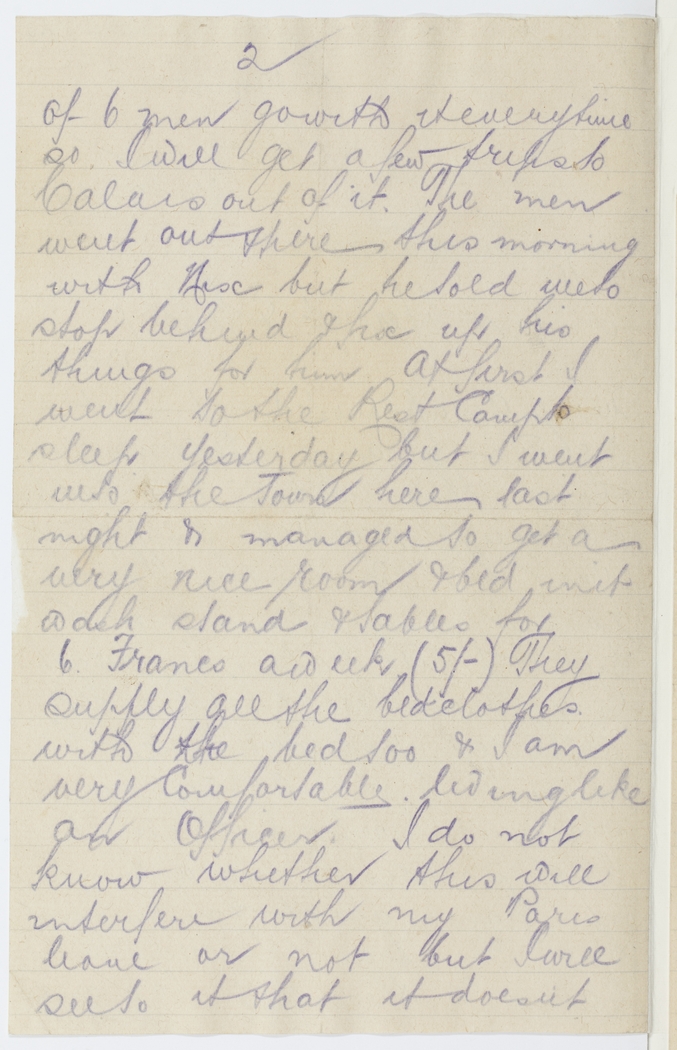 2
of 6 men go with it everytime
so I will get a few trips to
Calais out of it. The men
went out there this morning
with but he told me to
stop behind & fix up his
things for him. At first I
went to the Rest Camp to
sleep yesterday but I went
into the Town here last
night & managed to get a
very nice room & bed in it
wash stand & tables for
6. Francs a week (5/-) They
supply all the bedclothes.
with the bed too & I am
very Comfortable. living like
an Officer. I do not
know whether this will
interfere with my Paris
leave or not but I will
see to it that it doesnt